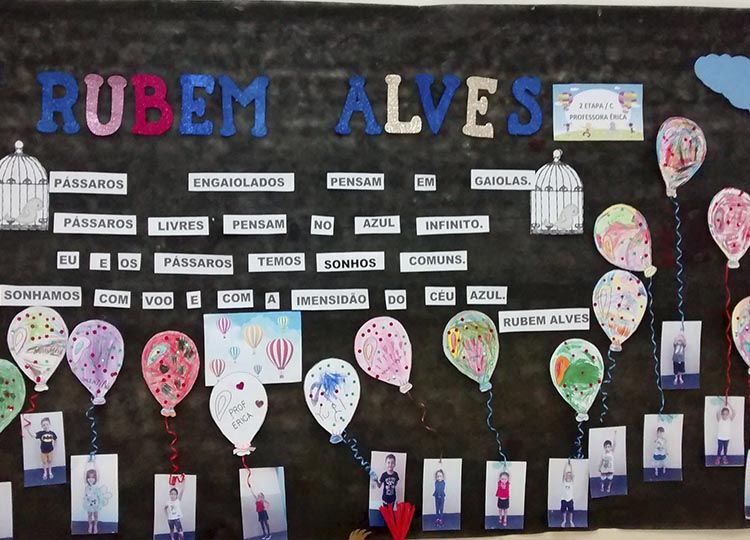 RUBEM ALVES
2 ETAPA / C
PROFESSORA ÉRICA
PÁSSAROS ENGAIOLADOS PENSAM EM GAIOLAS.
PÁSSAROS LIVRES PENSAM NO AZUL INFINITO.
EU E OS PÁSSAROS TEMOS SONHOS COMUNS.
SONHAMOS COM VOO E COM A IMENSIDÃO DO CÉU AZUL.
RUBEM ALVES
PROF
ERICA